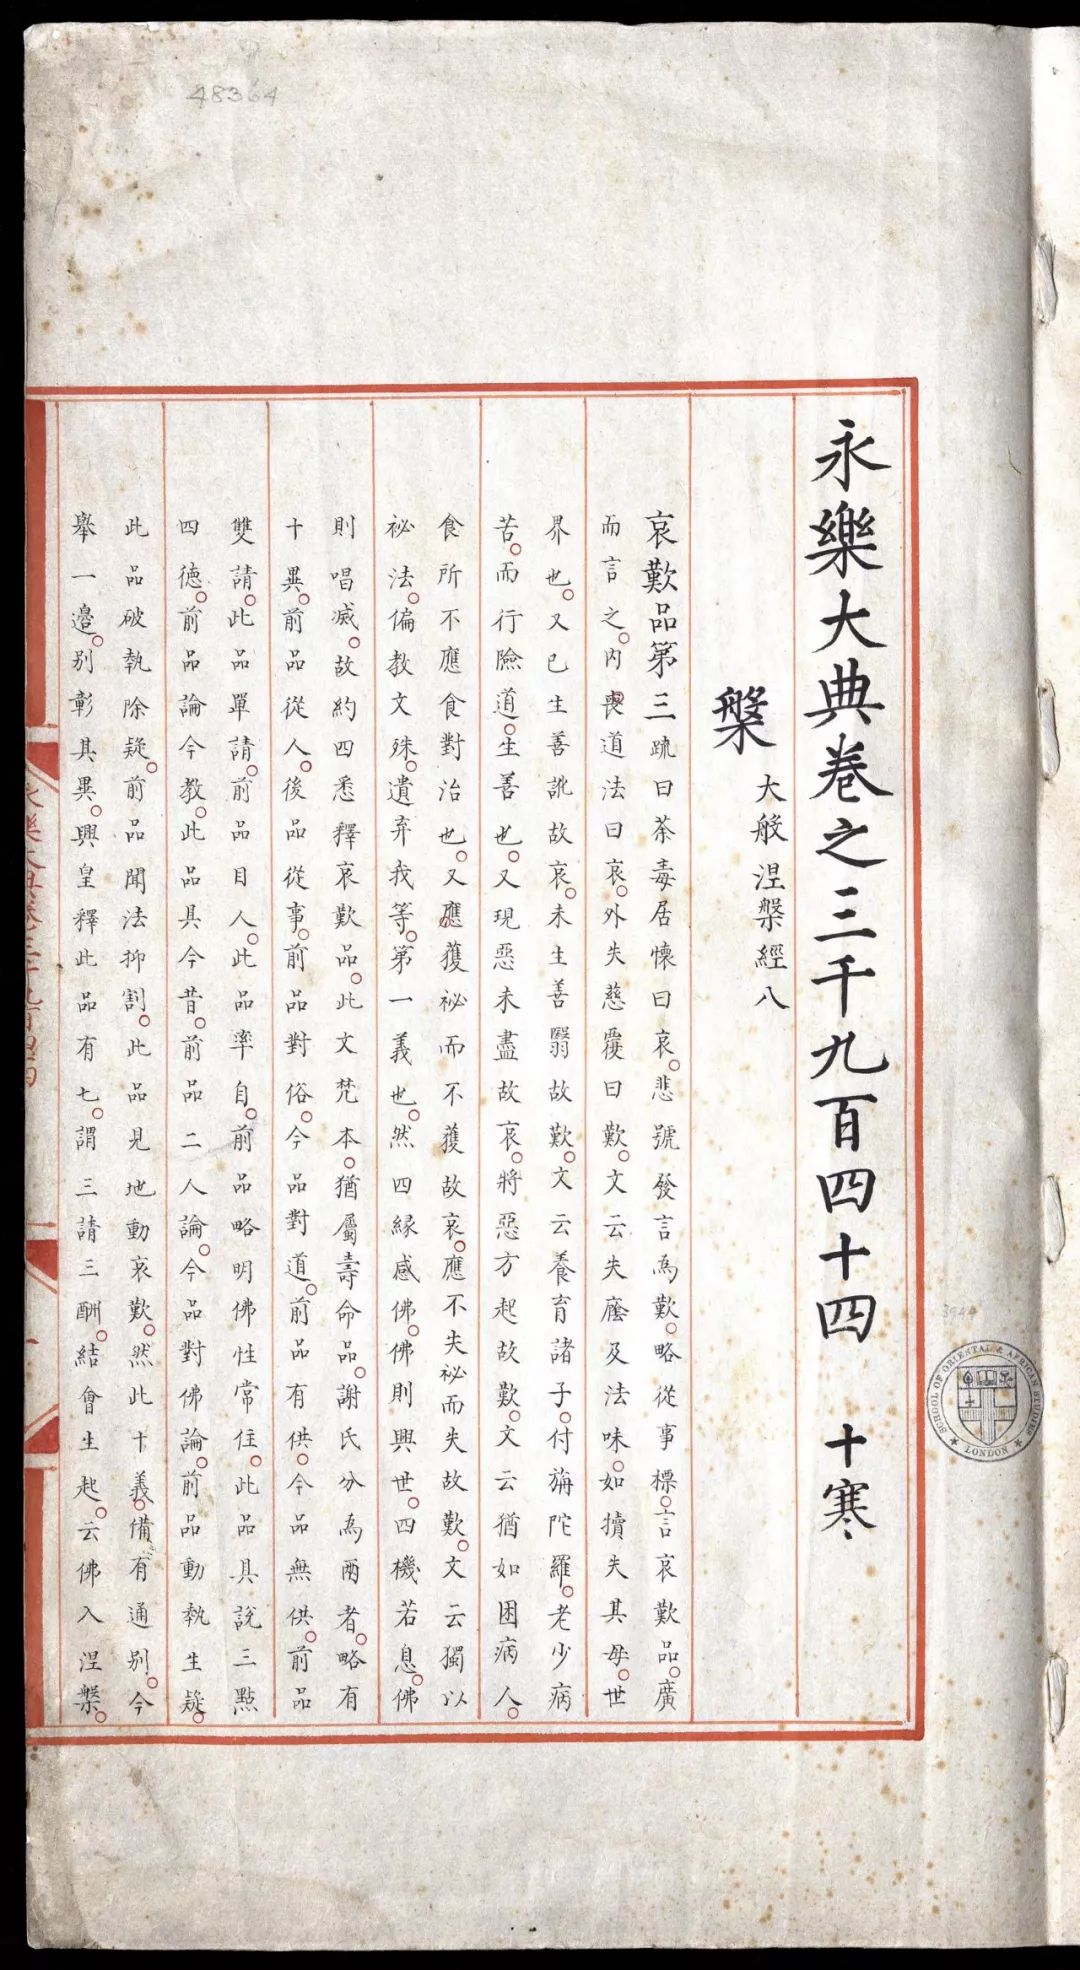 48364
永樂大典卷之三千九百四十四 十寒
槃 大般涅槃經八
哀歎品第三 疏曰荼毒居懷曰哀悲號發言為歎略從事標言哀歎品廣
而言之內喪道法曰哀外失慈覆曰歎文云失廕及法味如犢失其母世
界也又已生善訛故哀未生善翳故歎文云養育諸子付旃陀羅老少病
苦而行險道生善也又現惡未盡故哀將惡方起故歎文云猶如困病人
食所不應食對治也又應獲祕而不獲故哀應不失祕而失故歎文云獨以
祕法偏教文殊遺弃我等第一義也然四緣感佛佛則興世四機若息佛
則唱滅故約四悉釋哀歎品此文梵本猶屬壽命品謝氏分為兩者略有
十異前品從人後品從事前品對俗今品對道前品有供今品無供前品
雙請此品單請前品目人此品率自前品略明佛性常住此品具說三點
四德前品論今教此品具今昔前品二人論今品對佛論前品動執生疑
此品破執除疑前品聞法抑割此品見地動哀歎然此十義備有通別今
舉一邊別彰其異興皇釋此品有七謂三請三酬結會生起云佛入涅槃
永樂大典卷三千九百四十四
一
3944
SCHOOL OF ORIENTAL & AFRICAN STUDIES
LONDON